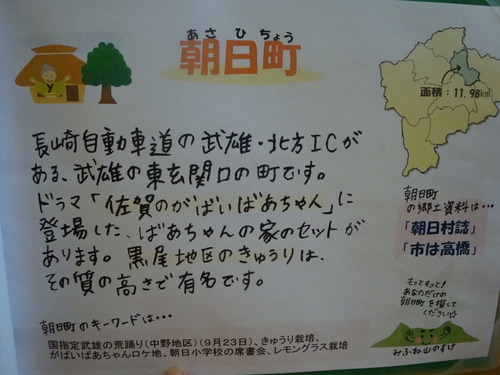 あさひちょう
朝日町
面積：11.98km²
長崎自動車道の武雄・北方ICが
ある、武雄の東玄関口の町です。
ドラマ「佐賀のがばいばあちゃん」に
登場した、ばあちゃんの家のセットが
あります。黒尾地区のきゅうりは、
その質の高さで有名です。
朝日町のキーワードは…
国指定武雄の荒踊り(中野地区)(9月23日)、きゅうり栽培、
がばいばあちゃんロケ地、朝日小学校の席書会、レモングラス栽培
朝日町
の郷土資料は…
「朝日村誌」
「市は高橋」
もっともっと！
あなただけの
朝日町を探して
ください☆
みふね山のすけ